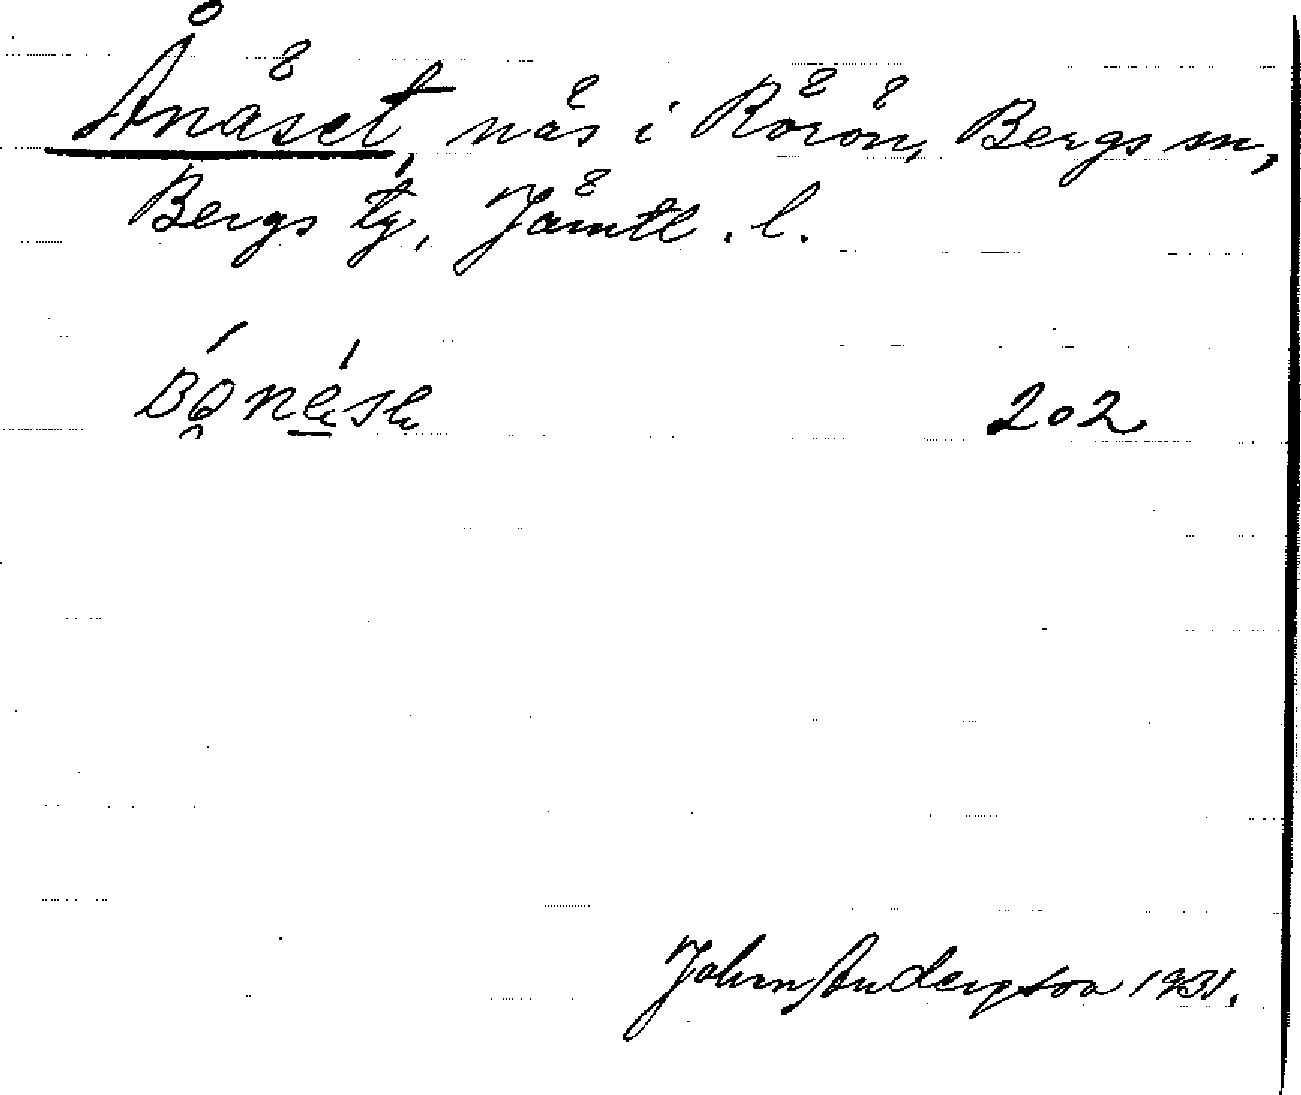 Ånäset, näs i Rörön, Bergs sn,
Bergs tg, Jämtl. l.
202
John Anderson 1931.